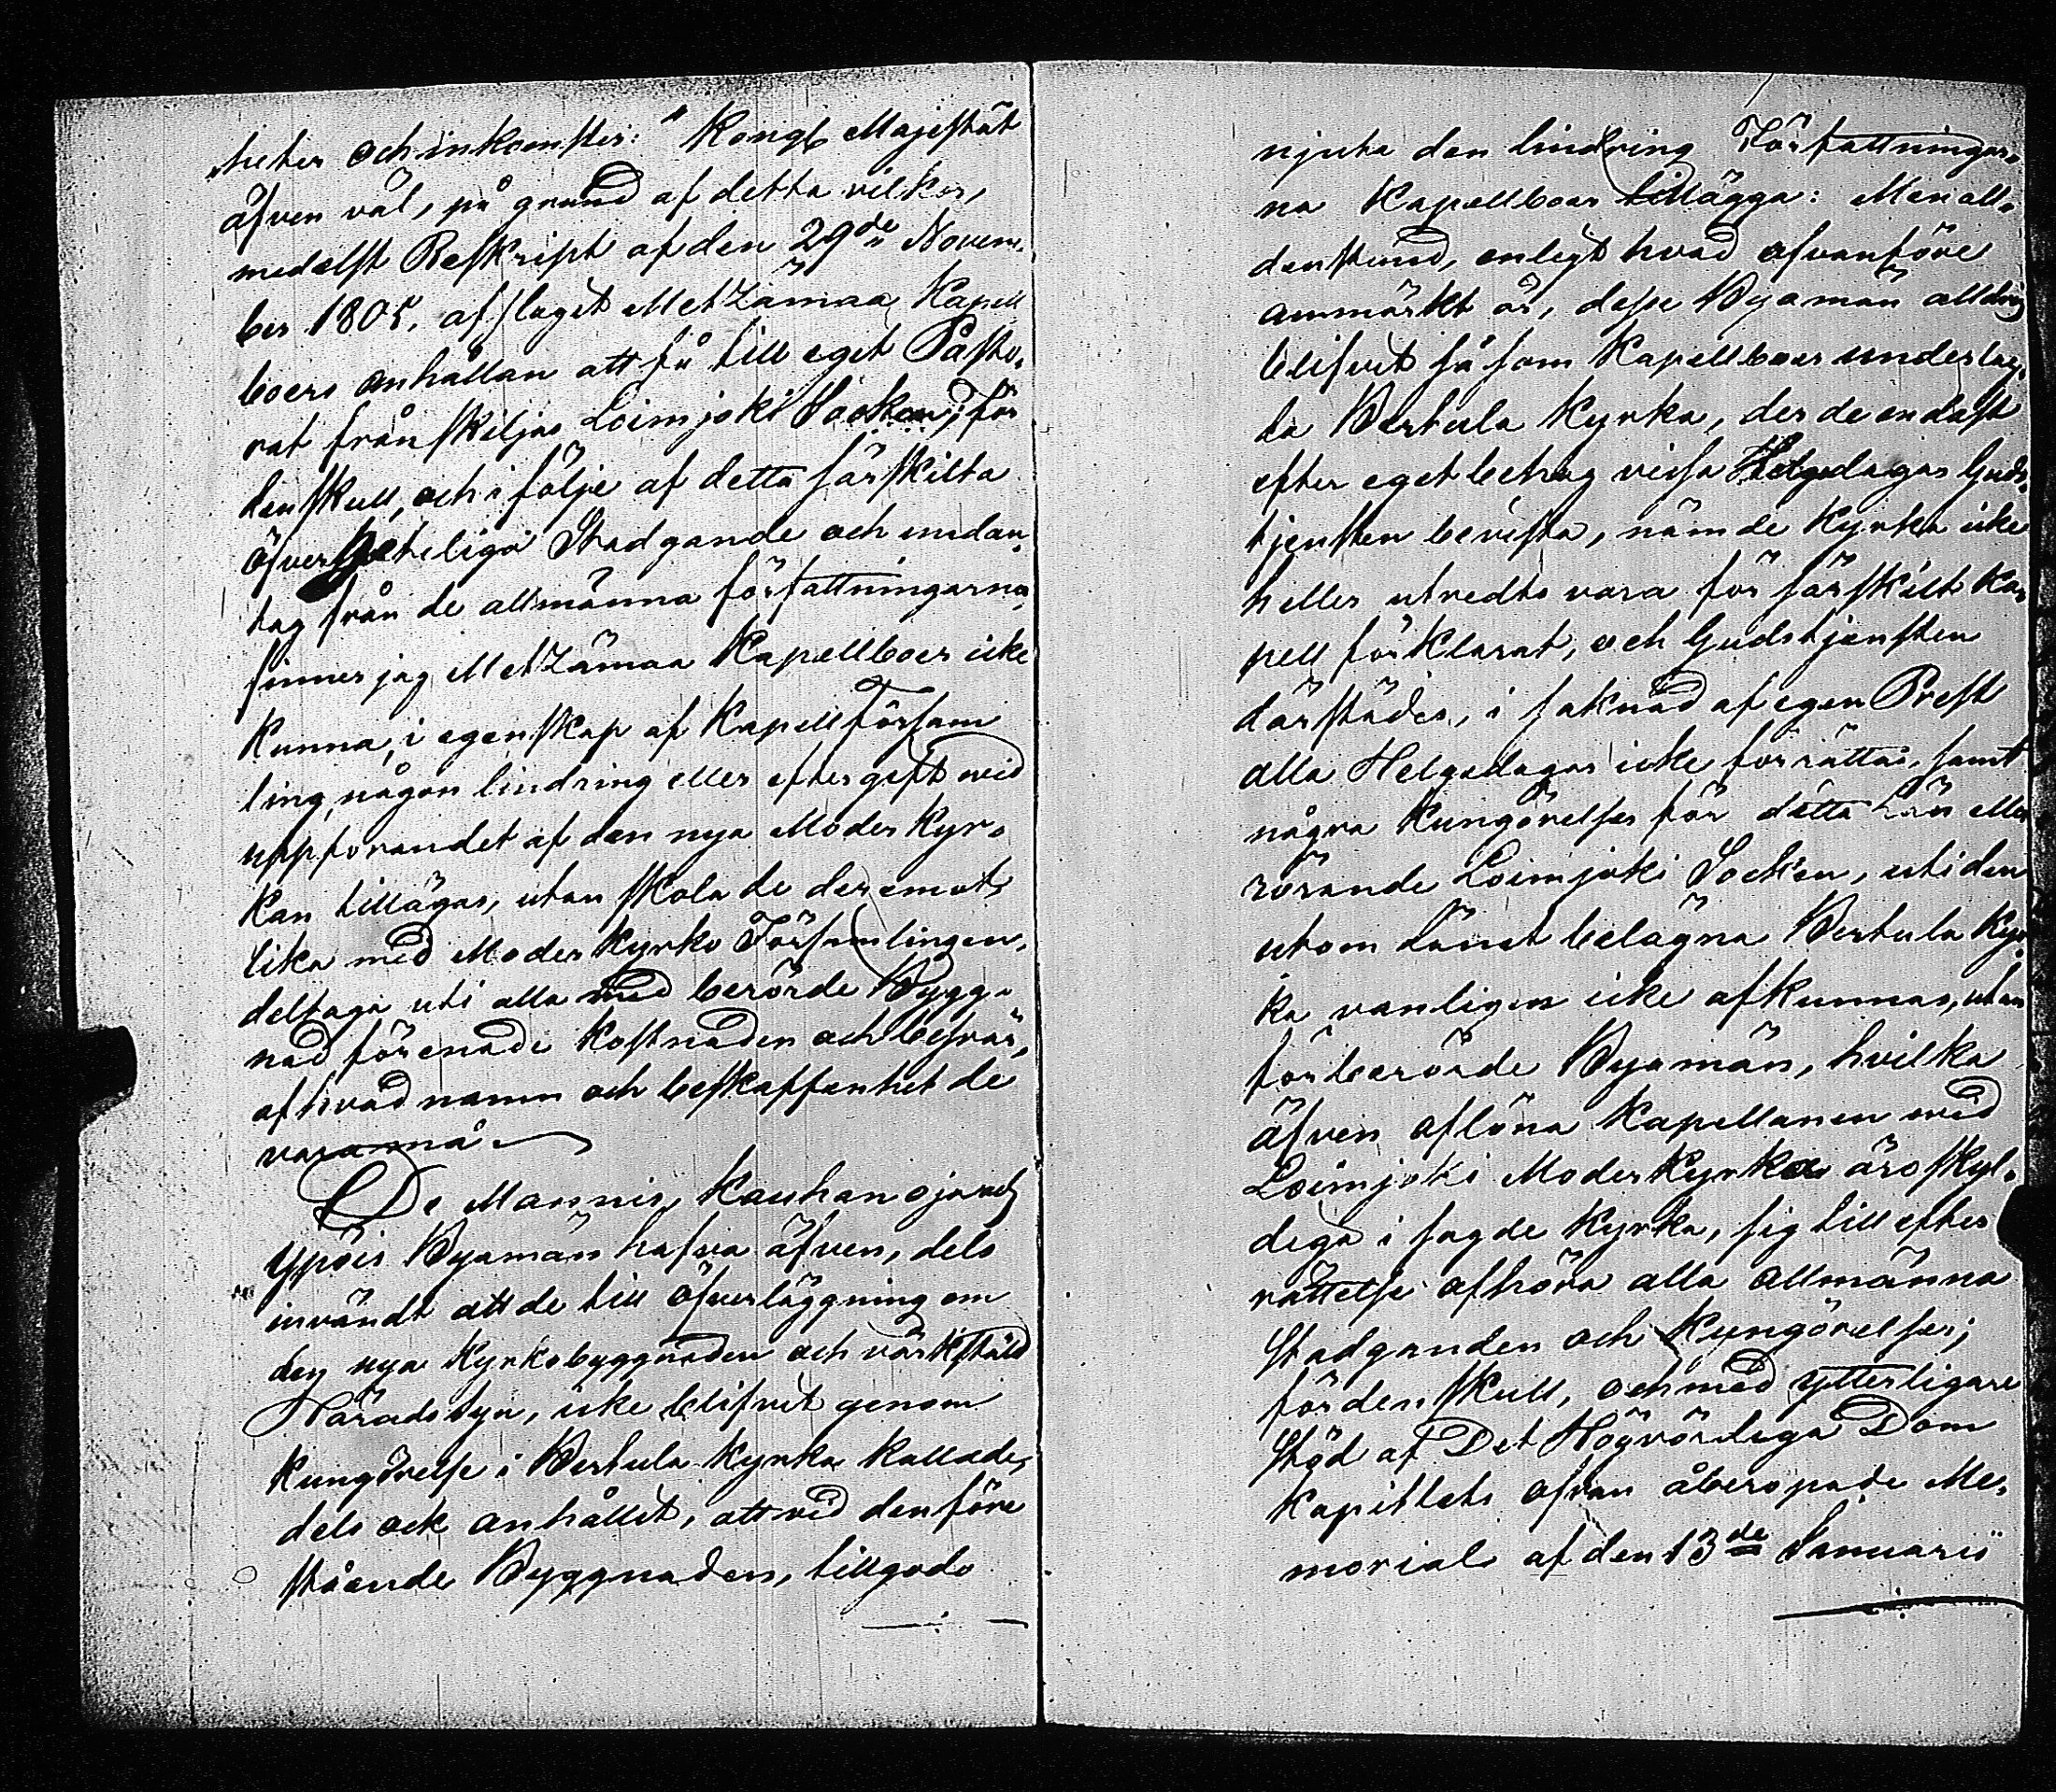 „heter och inkomster:" Kongl Majestät
äfven väl, på grund af detta vilkor,
medelst Reskript af den 29de Novem-
ber 1805. afslagit Metzämaa Kapell
boers anhållan att få till eget Pasto-
rat från skiljas Loimjoki Socken; för
denskull, och i följe af detta särskilta
öfverhetiliga Stadgande och undan-
tag från de allmänna författningarna,
finner jag Metzämaa Kapellboer icke
kunna, i egenskap af Kapell Försam
ling, någon lindring eller eftergift wid
uppförandet af den nya Moder Kyr-
kan tillägas, utan skola de deremot,
lika med Moder Kyrko Församlingen,
deltaga uti alla med berörde Bygg-
nad förenade kostnader och besvär,
af hvad namn och beskaffenhet de
vara må
De Mannis, Kauhanoja och
Ypöis Byamän hafva äfven, dels
invändt att de till öfverläggning om
den nya Kyrkobyggnaden och värkstäld
Häradssyn, icke blifvit genom
Kungörelse i Bertula Kyrka kallade,
dels ock anhållit, att vid den före
stående Byggnaden, tillgodo
njuta den lindring Författningar-
na Kapellboar tillägga: Men all-
denstund, enligt hvad ofvanföre
anmärkt är, desse Byamän alldrig
blifvit så som Kapellboer underlag-
da Bertula Kyrka, der de endast
efter eget behag vissa Helgedagar Guds-
tjensten bevista, nämde Kyrka icke
heller utredts vara för särskilt Ka-
pell förklarat, och Gudstjensten
därstädes, i saknad af egen Prest
alla Helgedagar icke förrättas, samt
några Kungörelser för detta Län eller
rörande Loimjoki Socken, uti den
utom Länet belägna Bertula Kyr-
ka vanligen icke afkunnas, utan
förberörde Byamän, hvilka
äfven aflöna Kapellanen wid
Loimjoki Moder Kyrka äro skyl-
diga i sagde Kyrka, sig till efter
rättelse afhöra alla allmänna
Stadganden och Kungörelser;
fördenskull, och med ytterligare
stöd af Det Högvördiga Dom
Kapitlets ofvan åberopade Me-
morial af den 13de Januarii